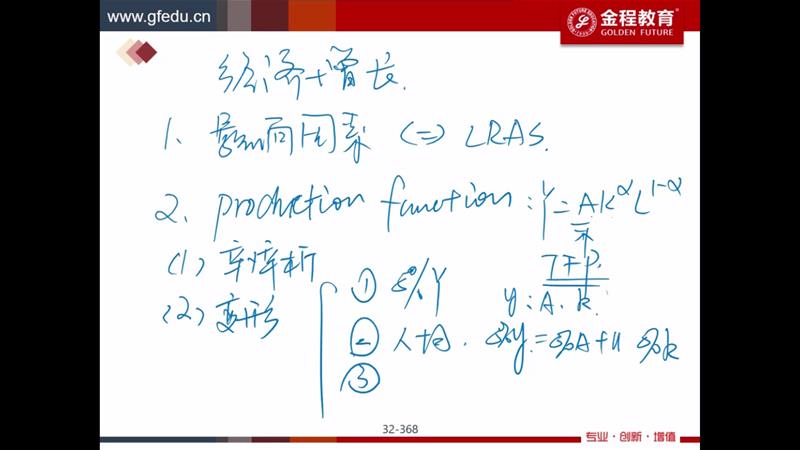 www.gfedu.cn
金程教育
GOLDEN FUTURE
经济增长.
1. 影响因素 <=> LRAS.
2. production function : Y=AK^α L^1-α
TFP.
(1) 
(2) 变形
① %Y
y: A. k.
② 人均. %y=%A+α %k
③
32-368
专业·创新·增值